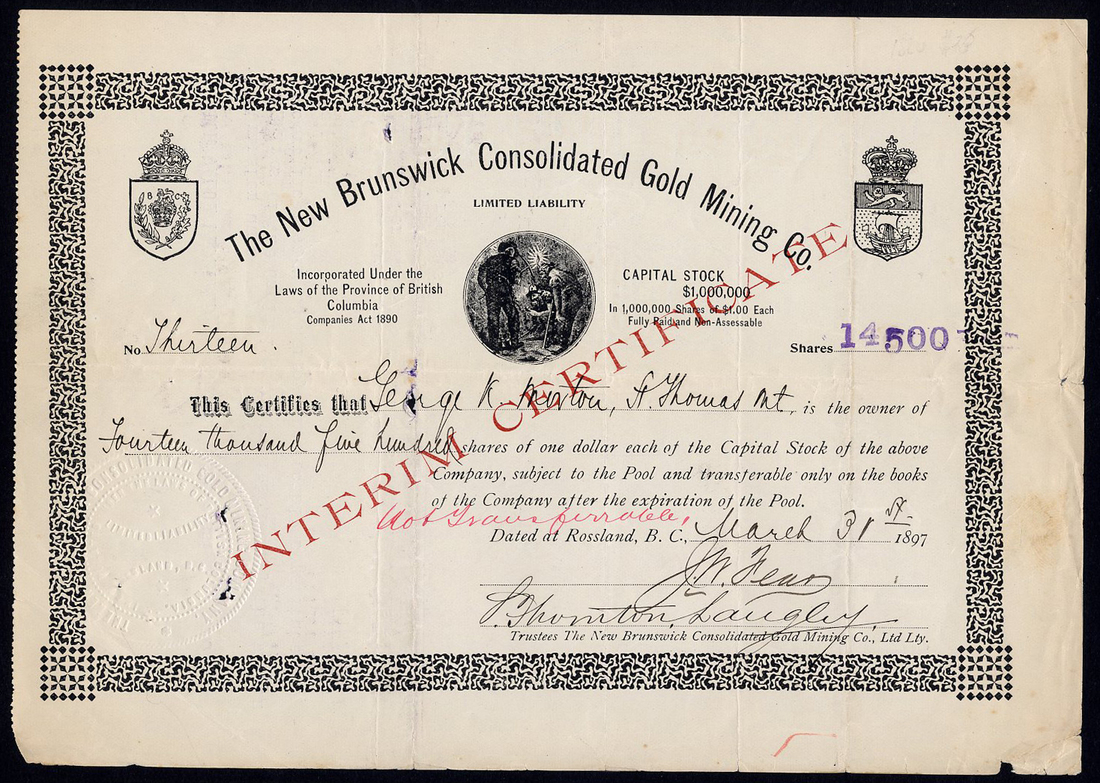 The New Brunswick Consolidated Gold Mining Co.
LIMITED LIABILITY
B C
Incorporated Under the
Laws of the Province of British
Columbia
Companies Act 1890
CAPITAL STOCK
$1,000,000
In 1,000,000 Shares of $1.00 Each
Fully Paid and Non-Assessable
No. Thirteen.
Shares 14500
INTERIM CERTIFICATE
This Certifies that George K. St. Thomas Ont, is the owner of
Fourteen thousand five hundred shares of one dollar each of the Capital Stock of the above
Company, subject to the Pool and transferable only on the books
of the Company after the expiration of the Pool.
Not Transferrable,
Dated at Rossland, B. C., March 31st 1897
Thornton Langley
Trustees The New Brunswick Consolidated Gold Mining Co., Ltd Lty.